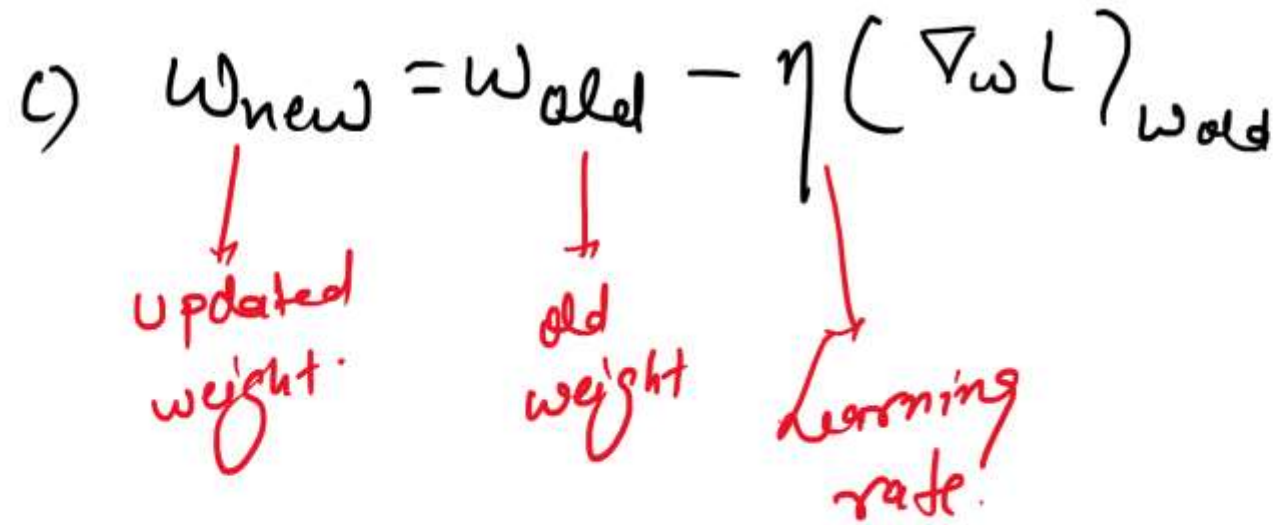 c) w_new = w_old - η (∇_w L)_w_old
updated old
weight. weight Learning
rate.